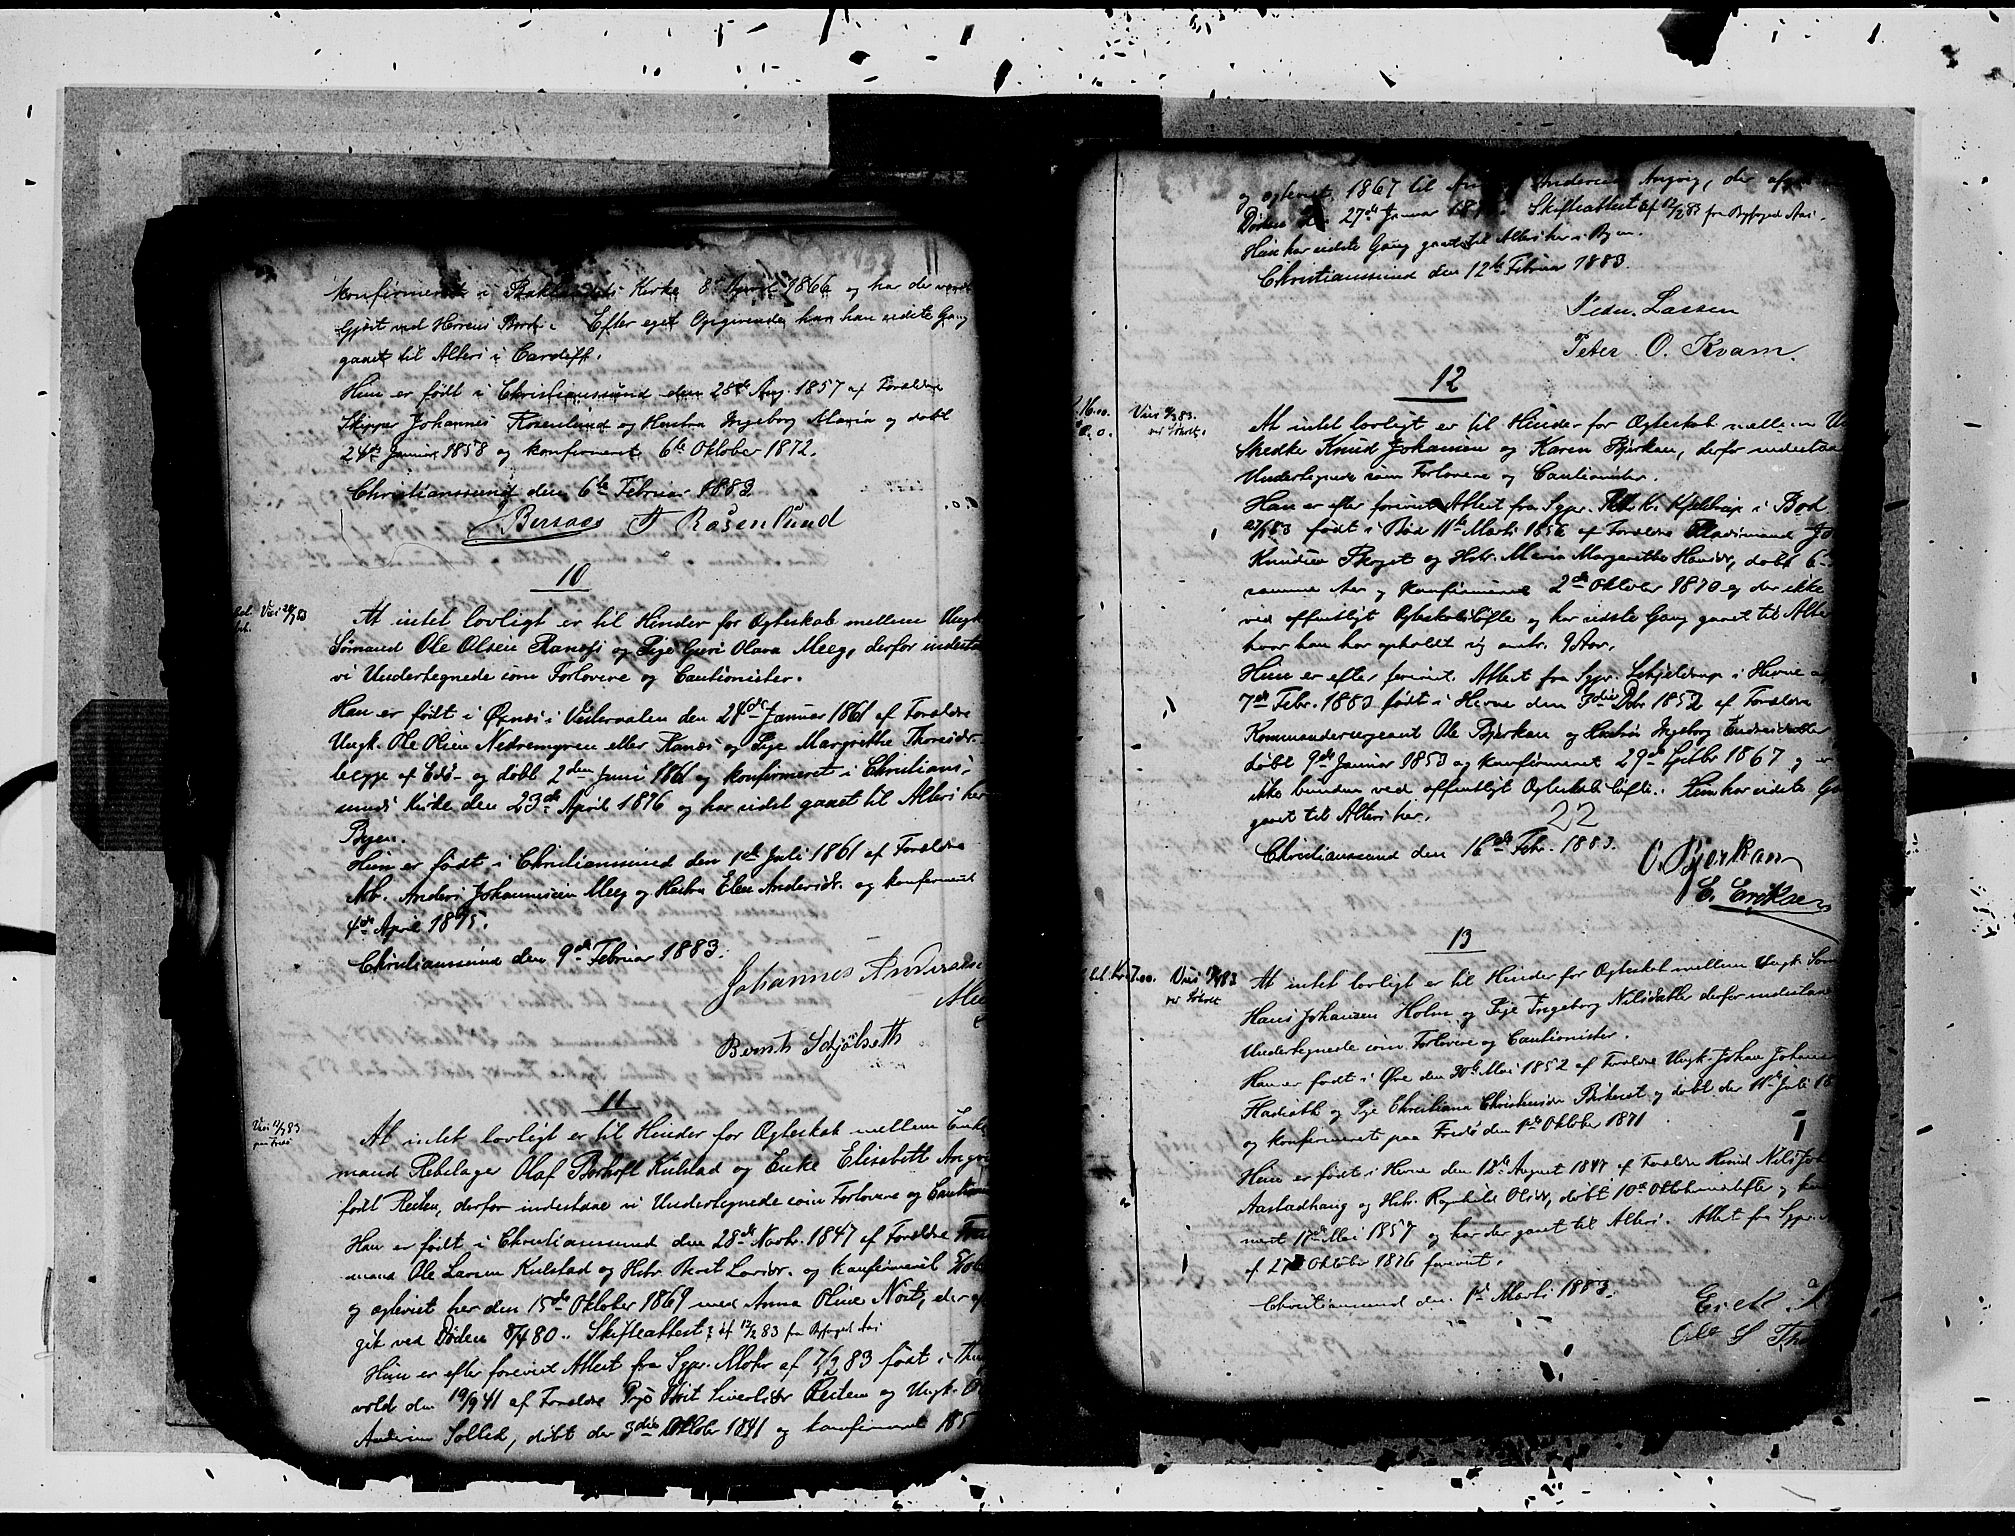 konfirmeret i Baklandets Kirke 8de April 1866 og har der
gjort ved Herrens Bord. Efter eget Opgivende har han sidste Gang
gaaet til Alters i Cardiff.
Hun er født i Christianssund den 28de Aug. 1857 af Forældre
Skipper Johannes Rosenlund og Hustru Ingeborg Maria og døbt
24de Januar 1858 og konfirmeret 6te Oktober 1872.
Christianssund den 6te Februar 1883
Rosenlund
10
Viet
At intet lovligt er til Hinder for Ægteskab mellem Ungk.
Sømand Ole Olsen Ranes og Pige Guri Olava Meeg, derfor indestaa
vi Undertegnede som Forlovere og Cautionister.
Han er født i Øxnes i Vesteraalen den 24de Januar 1861 af Forældre
Ungk. Ole Olsen Nedremyren eller Ranes og Pige Margrethe Thoresdr.
begge af Edø og døbt 2den Juni 1861 og konfirmeret i Christians-
sunds Kirke den 23de April 1876 og har sidst gaaet til Alters her
Byen.
Hun er født i Christianssund den 1ste Juli 1861 af Forældre
Arb. Anders Johannesen Meeg og Hustru Elen Andersdr. og konfirmeret
4de April 1875.
Christianssund den 9de Februar 1883.
Johannes Andersen
Bernt Schjølseth
11
Viet
At intet lovligt er til Hinder for Ægteskab mellem Enke-
mand Rebslager Olaf Berhoft Kulstad og Enke Elisabeth Angvig
født Resten, derfor indestaae vi Undertegnede som Forlovere og Cautionister
Han er født i Christianssund den 28de Novbr. 1847 af Forældre
mand Ole Larsen Kulstad og Hstr. Berit Larsdr. og konfirmeret
og ægteviet her den 15de Oktober 1869 med Anna Oline, der af-
gik ved Døden 8/4 80. Skifteattest af 12/2 83 fra Byfoged
Hun er efter forevist Attest fra Sgpr. Mohr af 7/2 83 født i Thing-
vold den 19/9 41 af Forældre Pige Berit Sivertsdr Resten og Ungk.
Andersen Solled, døbt der 3die Oktober 1841 og konfirmeret 185
og ægteviet 1867 til Andersen Angvig, der afgik
Døden den 27de Januar. Skifteattest af 12/2 83 fra Byfoged
Hun har sidste Gang gaaet til Alters her i Byen.
Christianssund den 12te Februar 1883.
Pedr. Larsen
Peter O. Kvam.
12
Viet
At intet lovligt er til Hinder for Ægteskab mellem
Snedker Knud Johansen og Karen Bjerkan, derfor indestaa
Undertegnede som Forlovere og Cautionister.
Han er efter forevist Attest fra Sgpr. Kjelstrup i Bod
født i Bod 11te Marts 1856 af Forældre Gaardmand
Knudsen Berget og Hstr. Maria Margrethe Hansdr, døbt 6-
samme Aar og konfirmeret 2den Oktober 1870 og der ikke
ved offentligt Ægteskabsløfte og har sidste Gang gaaet til Alters
hvor han har opholdt sig omtr. 9 Aar.
Hun er efter forevist Attest fra Sgpr. Schjeldrup i Hevne af
7de Febr. 1883 født i Hevne den 3die Dcbr 1852 af Forældre
Kommandersergeant Ole Bjerkan og Hustru Ingeborg Endresdatter
døbt 9de Januar 1853 og konfirmeret 29de Septbr 1867 og er
ikke bunden ved offentligt Ægteskabsløfte. Hun har sidste
gaaet til Alters her.
22
Christianssund den 16de Febr. 1883.
O. Bjerkan
E. Eriksen
13
Viet
At intet lovligt er til Hinder for Ægteskab mellem Ungk. Søm
Hans Johansen Holm og Pige Ingeborg Nilsdatter derfor indestaa
Undertegnede som Forlovere og Cautionister.
Han er født i Øre den 30te Mai 1852 af Forældre Ungk. Johan Johansen
og Pige Christiana Christensdr og døbt der 11te Juli 18
og konfirmeret paa Fredø den 1ste Oktober 1871
Hun er født i Hevne den 12te August 1847 af Forældre Husmd Nils Joh
Aastadhaug og Hstr. Ragnhild Olsdr, døbt 10de Oktober næstefter og
meret 17de Mai 1857 og har der gaaet til Alters. Attest fra Sgpr.
af 27 Oktober 1876 forevist.
Christianssund den 1ste Marts 1883.